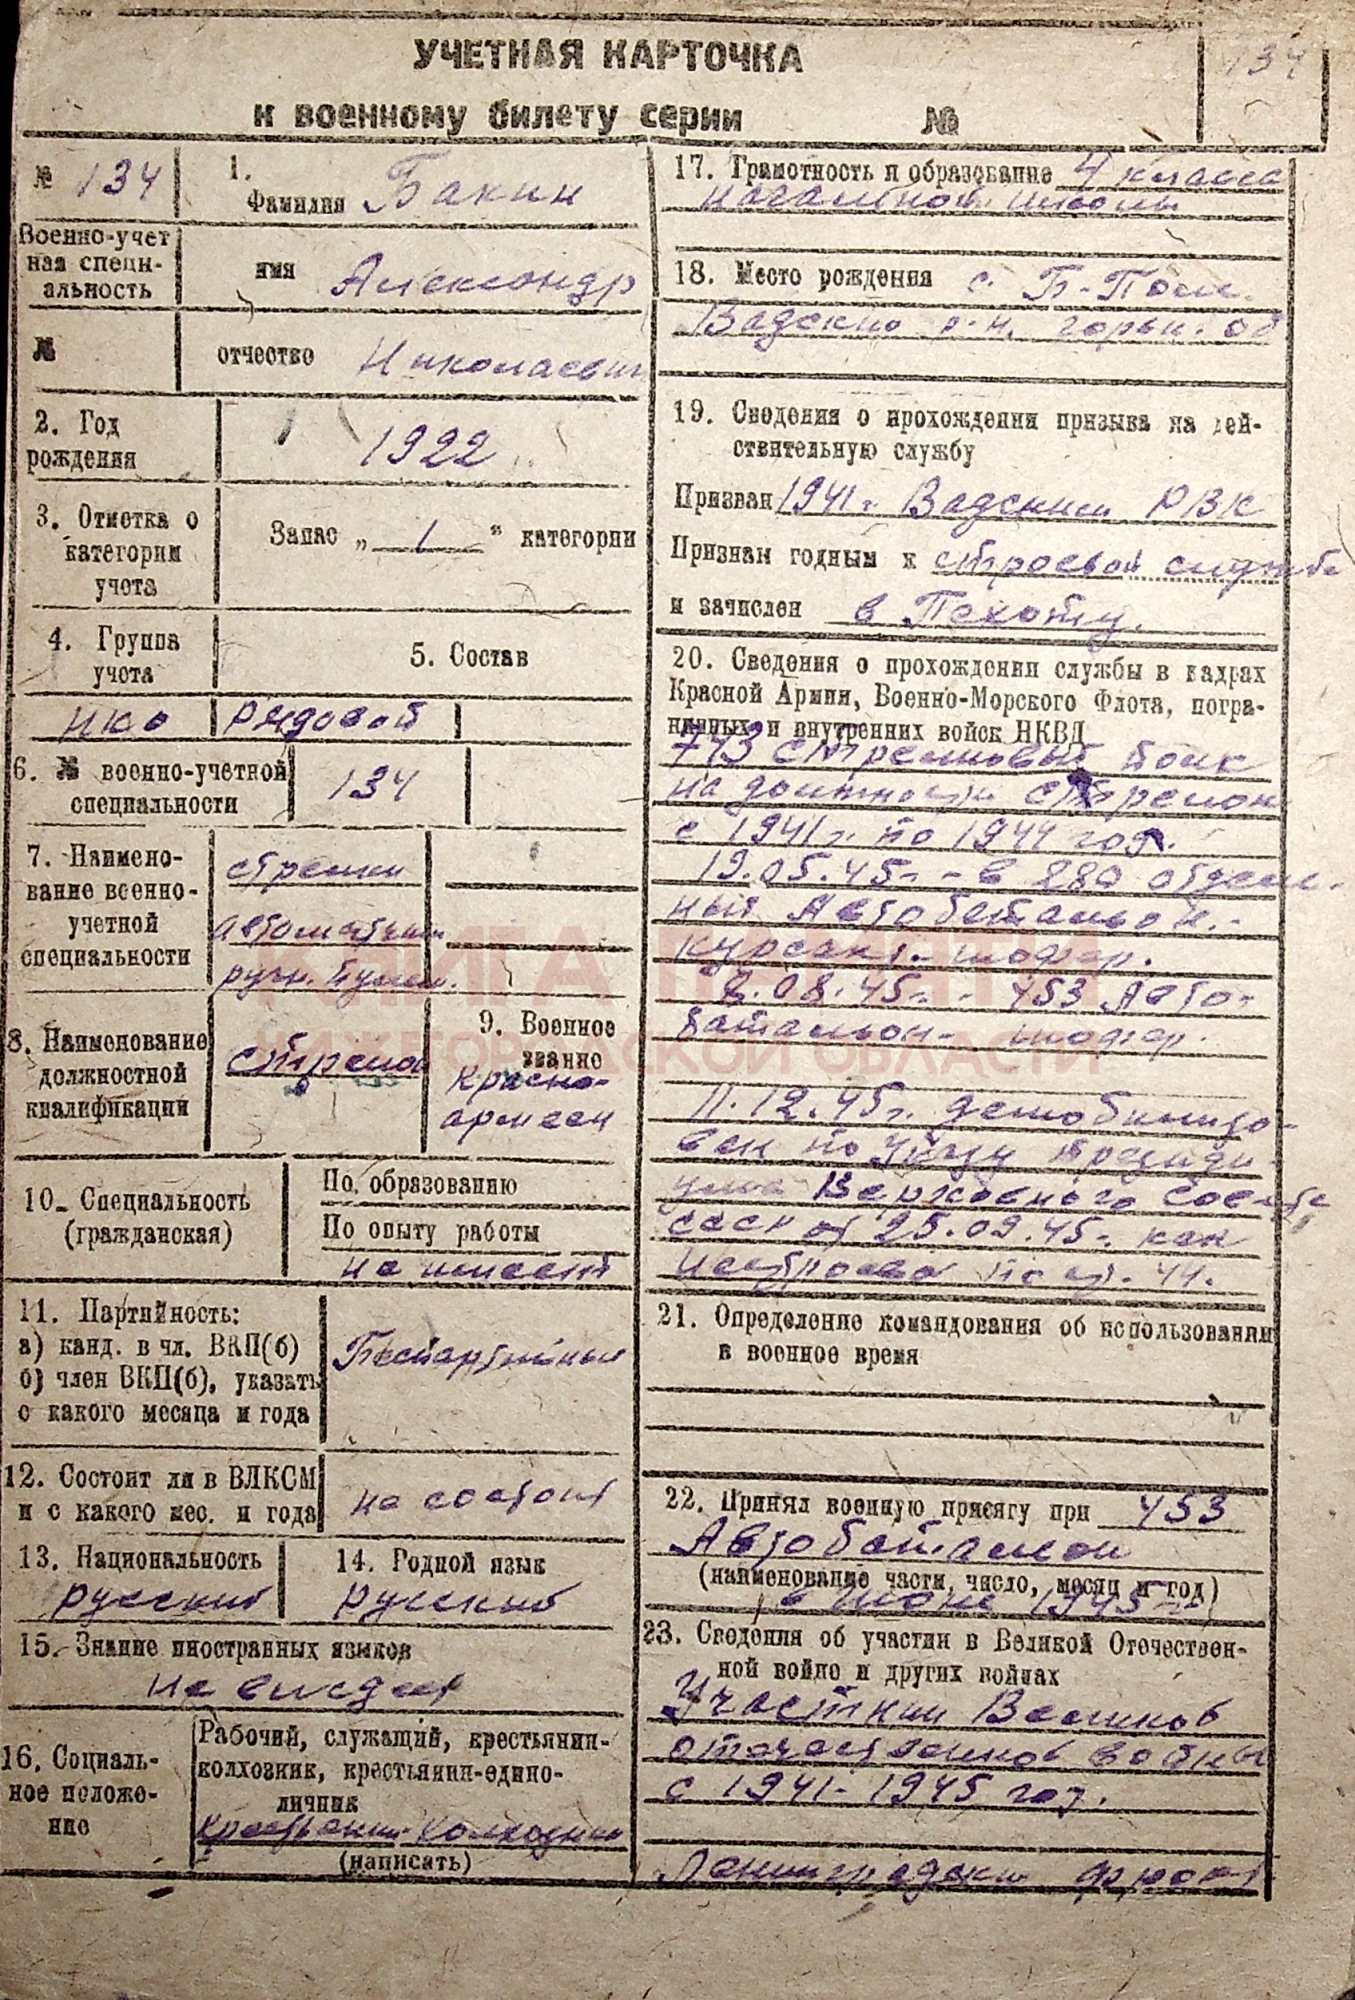 УЧЕТНАЯ КАРТОЧКА
к военному билету серии №
134
№ 134
1. Фамилия Бакин
Военно-учетная специальность
имя Александр
№
отчество Николаевич
2. Год рождения
1922
3. Отметка о категории учота
Запас „ 1 “ категории
4. Группа учота
5. Состав
НКО
Рядовой
6. № военно-учетной специальности
134
7. Наименование военно-учетной специальности
стрелки
автоматчики
ручн. пулем.
8. Наименование должностной квалификации
стрелок
9. Военное звание
Красно-
армеец
10. Специальность (гражданская)
По образованию
По опыту работы
не имеет
11. Партийность:
а) канд. в чл. ВКП(б)
б) член ВКП(б), указать
с какого месяца и года
Беспартийный
12. Состоит ли в ВЛКСМ
и с какого мес. и года
не состоит
13. Национальность
русский
14. Родной язык
русский
15. Знание иностранных языков
не владеет
16. Социальное положение
Рабочий, служащий, крестьянин-
колхозник, крестьянин-едино-
личник
Крестьянин-колхозник
(написать)
17. Грамотность и образование 4 класса
начальной школы
18. Место рождения с. Б-Поля
Вадский р-н. горьк. об
19. Сведения о прохождении призыва на дей-
ствительную службу
Призван 1941 г. Вадским РВК
Признан годным к строевой службе
и зачислен в Пехоту.
20. Сведения о прохождении службы в кадрах
Красной Армии, Военно-Морского Флота, погра-
ничных и внутренних войск НКВД
743 стрелковый полк
на должности стрелок
с 1941 г. по 1944 год.
19.05.45 г. - в 280 отдель-
ный Автобатальон.-
курсант - шофер.
8.08.45 г. - 453 Авто-
батальон - шофер.
11.12.45 г. демобилизо-
ван по Указу Президи-
ума Верховного Совета
СССР от 25.09.45 г. как
21. Определение командования об использовании
в военное время
22. Принял военную присягу при 453
Автобатальон
(наименование части, число, месяц и год)
в июне 1945 г.
23. Сведения об участии в Великой Отечествен-
ной войне и других войнах
Участник Великой
отечественной войны
с 1941-1945 год.
Ленинградский фронт
КНИГА ПАМЯТИ
НИЖЕГОРОДСКОЙ ОБЛАСТИ